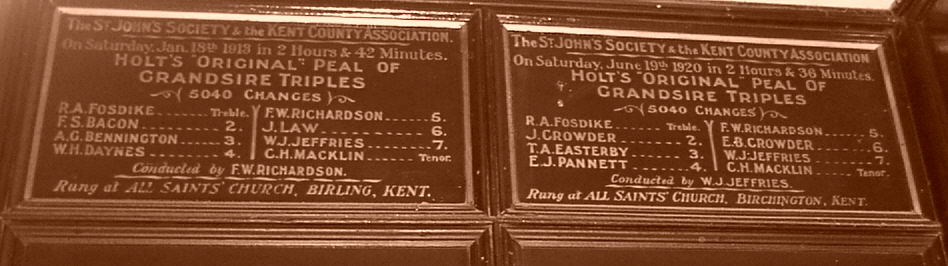 The St John's Society & the Kent County Association.
On Saturday, Jan. 18th 1913 in 2 Hours & 42 Minutes.
Holt's "Original" Peal of
Grandsire Triples
5040 Changes
R.A. Fosdike Treble.
F.S. Bacon 2.
A.G. Bennington 3.
W.H. Daynes 4.
F.W. Richardson 5.
J. Law 6.
W.J. Jeffries 7.
C.H. Macklin Tenor.
Conducted by F.W. Richardson.
Rung at All Saints' Church, Birling, Kent.
The St John's Society & the Kent County Association
On Saturday, June 19th 1920 in 2 Hours & 36 Minutes.
Holt's "Original" Peal of
Grandsire Triples
5040 Changes
R.A. Fosdike Treble.
J. Crowder 2.
T.A. Easterby 3.
E.J. Pannett 4.
F.W. Richardson 5.
E.B. Crowder 6.
W.J. Jeffries 7.
C.H. Macklin Tenor.
Conducted by W.J. Jeffries.
Rung at All Saints' Church, Birchington, Kent.